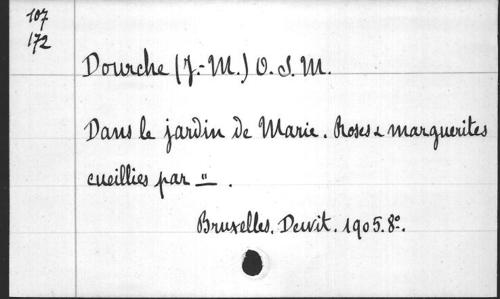 107
172
Dourche (J.-M.) O.S.M.
Dans le jardin de Marie. Roses & marguerites
cueillies par _"_.
Bruxelles. Dewit. 1905. 8º.